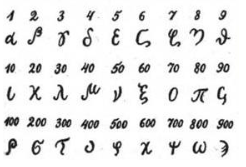 1 2 3 4 5 6 7 8 9
α β γ δ ε ϛ ζ η ϑ
10 20 30 40 50 60 70 80 90
ι κ λ μ ν ξ ο π ϛ
100 200 300 400 500 600 700 800 900
ρ σ τ υ φ χ ψ ω ϡ